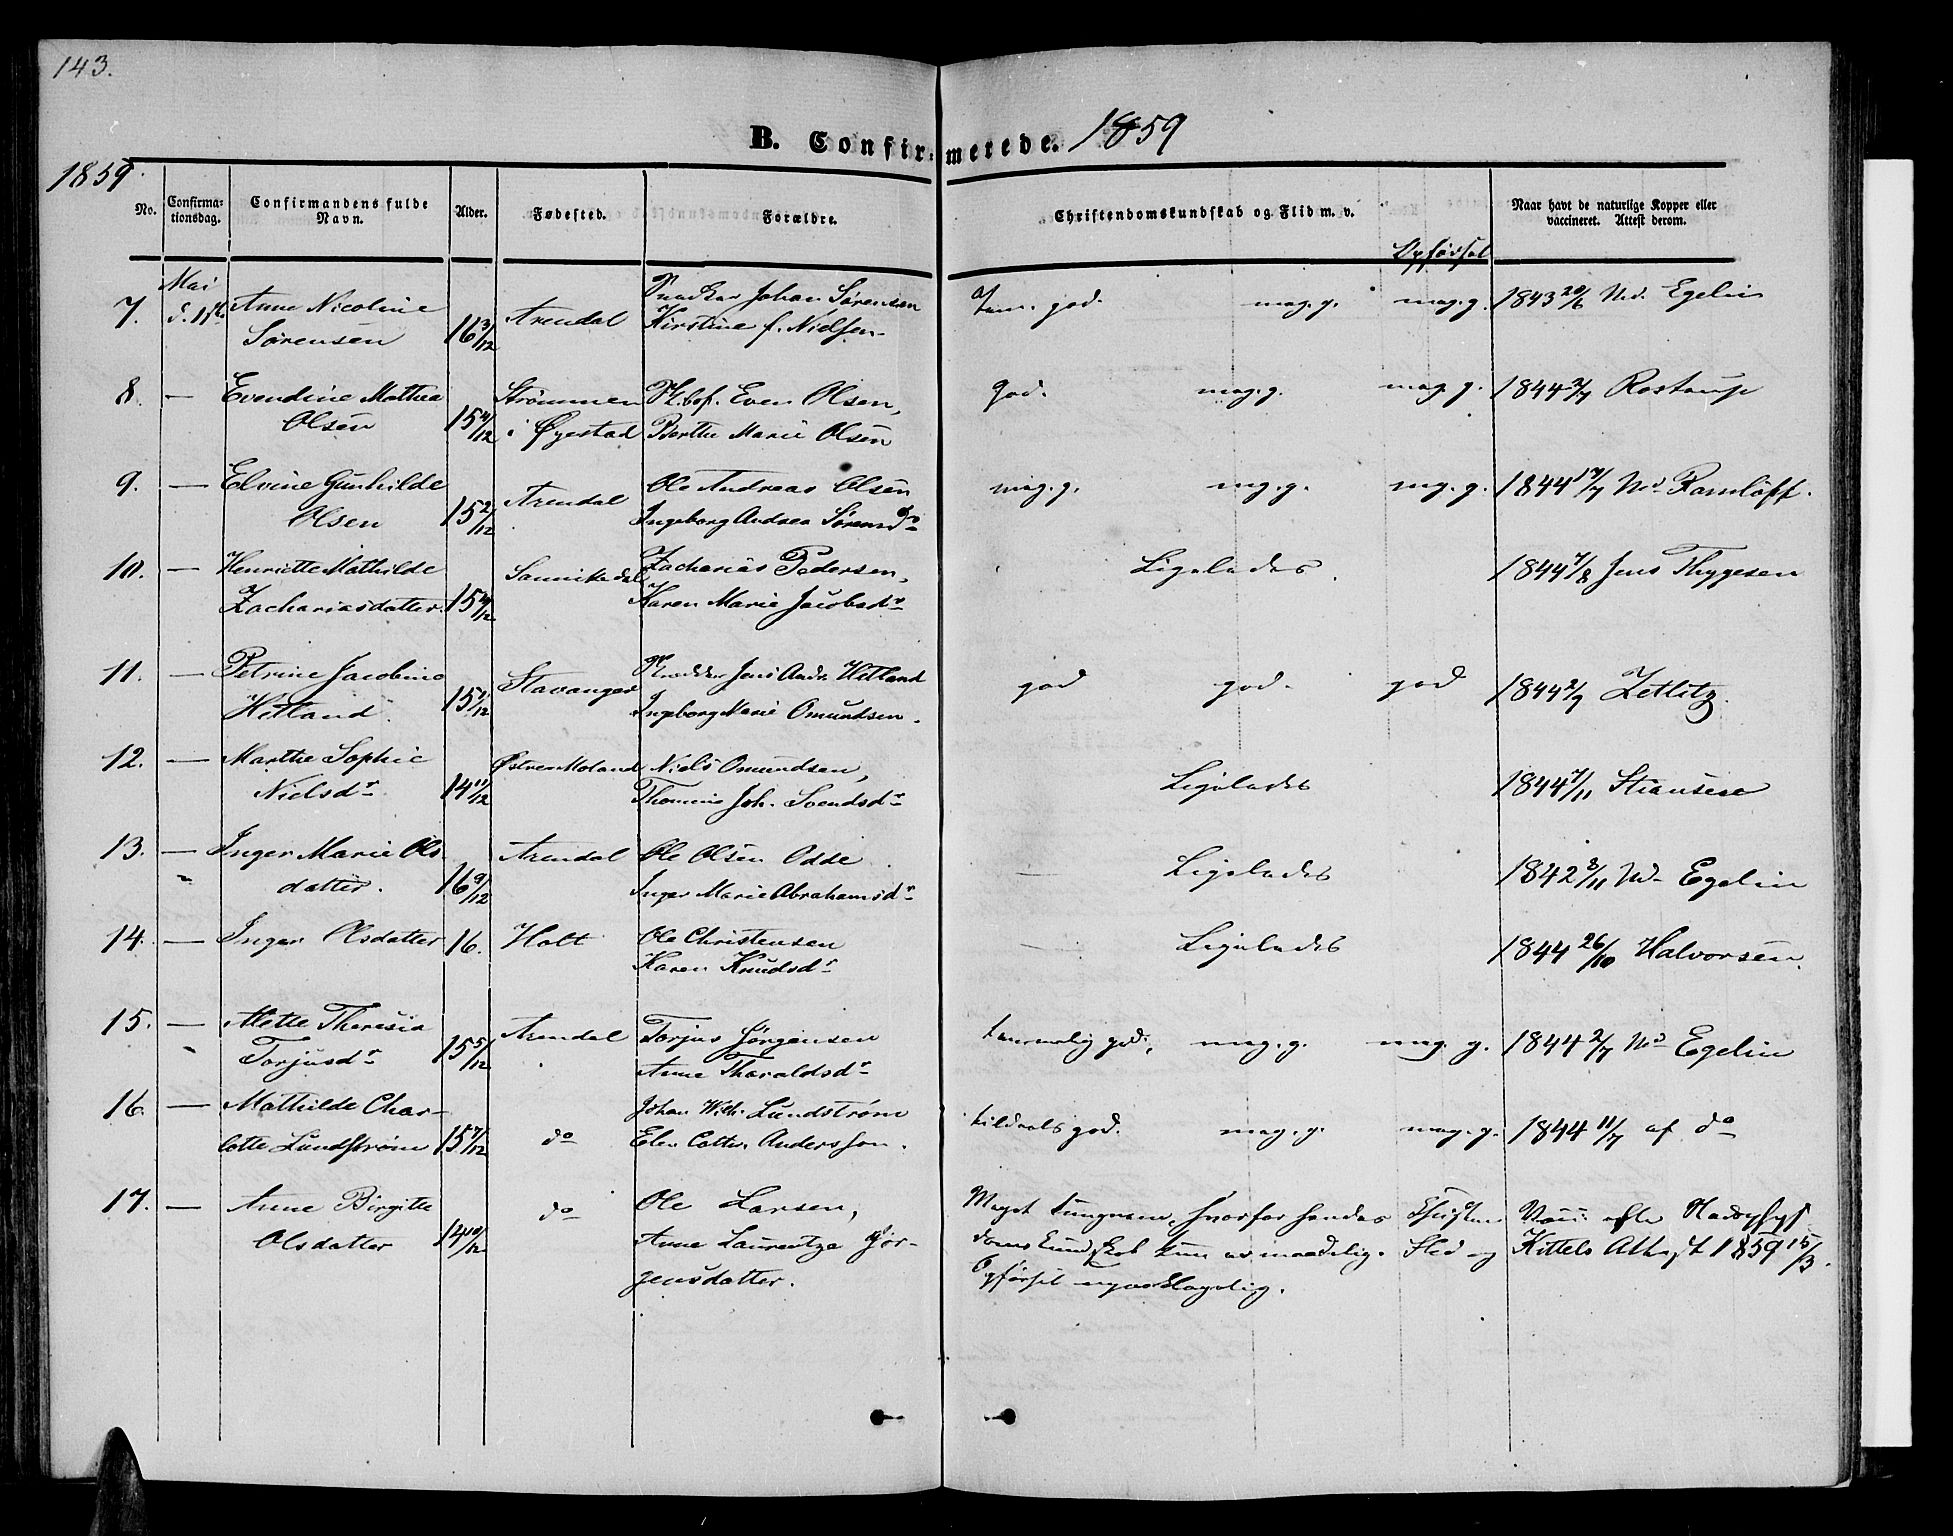 143.
B. Confirmerede. 1859
1859.
No.
Confirmationsdag.
Confirmandens fulde Navn.
Alder.
Fødested.
Forældre.
Christendomskundskab og Flid m. v.
Opførsel
Naar havt de naturlige Kopper eller vaccineret. Attest derom.
7. Mai Anne Nicoline Sørensen 16 3/12 Arendal Snedker Johan Sørensen
Kirstine f. Nielsen god. meg. g. meg. g. 1843 20/6 Egelin
8. — Evendine Mathea Olsen 15 4/12 Strømmen i Øyestad Even Olsen,
Berthe Marie Olsen god. meg. g. meg. g. 1844 Rostrup
9. — Elvine Gunhilde Olsen 15 2/12 Arendal Ole Andreas Olsen
Ingeborg Andrea Sørensdr meg. g. meg. g. meg. g. 1844 17/7 Ramløff.
10. — Henriette Mathilde Zachariasdatter. 15 Sannikedal Zacharias Pedersen,
Karen Marie Jacobsdr Ligeledes. 1844 Jens Thygesen
11. — Petrine Jacobine Hetland. 15 1/12 Stavanger Jens Andr. Hetland
Ingeborg Marie Omundsen. god god. god 1844 2/9 Zetlitz.
12. — Marthe Sophie Nielsdr. 14 11/12 Østre Moland Niels Omundsen,
Thomine Joh. Svendsdr Ligeledes 1844 7/11 Stiansen
13. — Inger Marie Olsdatter. 16 9/12 Arendal Ole Olsen Odde
Inger Marie Abrahamsdr — Ligeledes 1842 8/11 Egelin
14. — Inger Olsdatter 16. Holt Ole Christensen
Karen Knudsdr — Ligeledes 1844 26/10 Halvorsen.
15. — Alette Theresia Torjusdr 15 5/12 Arendal Torjus Jørgensen
Anne Tharaldsdr temmelig god. meg. g. meg. g. 1844 2/7 Egelin
16. — Mathilde Charlotte Lundstrøm 15 7/12 do Johan Wilh. Lundstrøm
Elen Cathr. Andersson. tildeels god. meg. g. meg. g. 1844 11/7 af do
17. — Anne Birgitte Olsdatter 14 10/12 do Ole Larsen,
Anne Laurentze Jørgensdatter.
Meget tungnem, hvorfor hendes Christendomskundskab kun er maadelig. Flid og
Opførsel upaaklagelig.
Vacc: efter Stadsphys. Kittels Attest 1859 15/3.